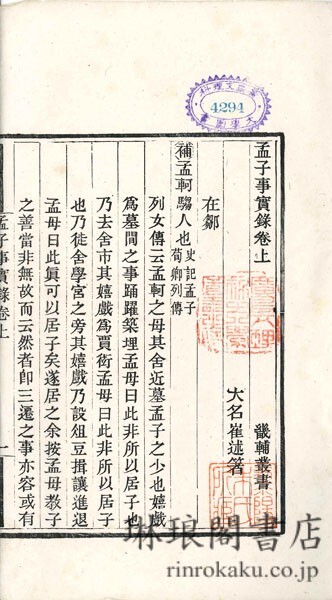 孟子事實錄卷上
畿輔叢書
大名崔述箸
在鄒
補孟軻騶人也史記孟子荀卿列傳
列女傳云孟軻之母其舍近墓孟子之少也嬉戲
為墓間之事踊躍築埋孟母曰此非所以居子也
乃去舍市其嬉戲為賈衒孟母曰此非所以居子
也乃徙舍學宮之旁其嬉戲乃設俎豆揖讓進退
孟母曰此真可以居子矣遂居之余按孟母教子
之善當非無故而云然者卽三遷之事亦容或有
孟子事實錄卷上
一
4294
琳琅閣書店
rinrokaku.co.jp